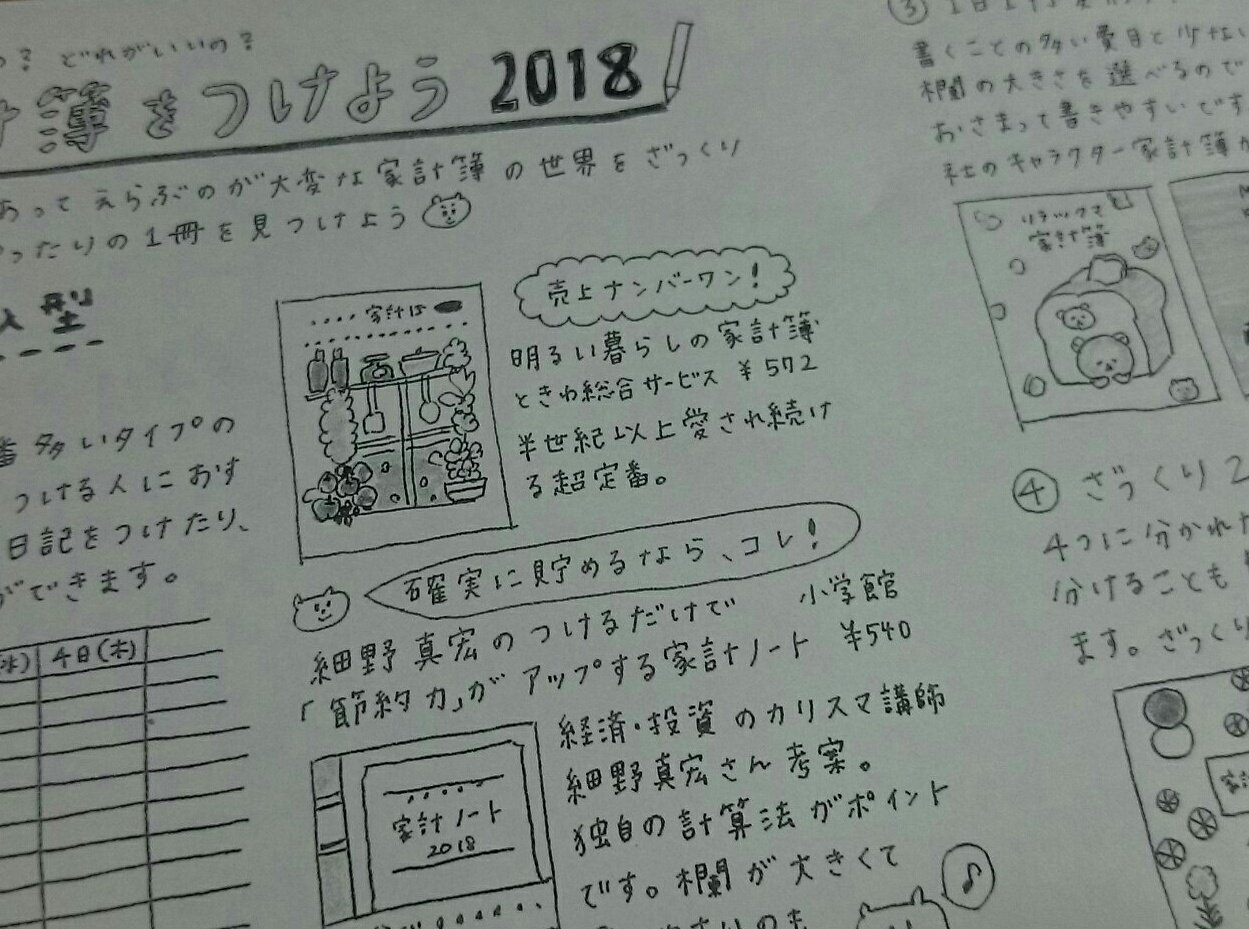 どれがいいの?
簿をつけよう 2018
あってえらぶのが大変な家計簿の世界をざっくり
ったりの1冊を見つけよう
型
家計簿
売上ナンバーワン!
明るい暮らしの家計簿
ときわ総合サービス ¥572
半世紀以上愛され続け
る超定番。
番多いタイプの
つける人におす
日記をつけたり、
ができます。
(水) 4日(木)
確実に貯めるなら、コレ!
細野真宏のつけるだけで 小学館
「節約力」がアップする家計ノート ¥540
家計ノート
2018
経済・投資のカリスマ講師
細野真宏さん考案。
独自の計算法がポイント
です。欄が大きくて
③
書くことの多い費目と少ない
欄の大きさを選べるので
おさまって書きやすいです
社のキャラクター家計簿が
リラックマ
家計簿
④ ざっくり
4つに分かれた
分けることも
ます。ざっくり